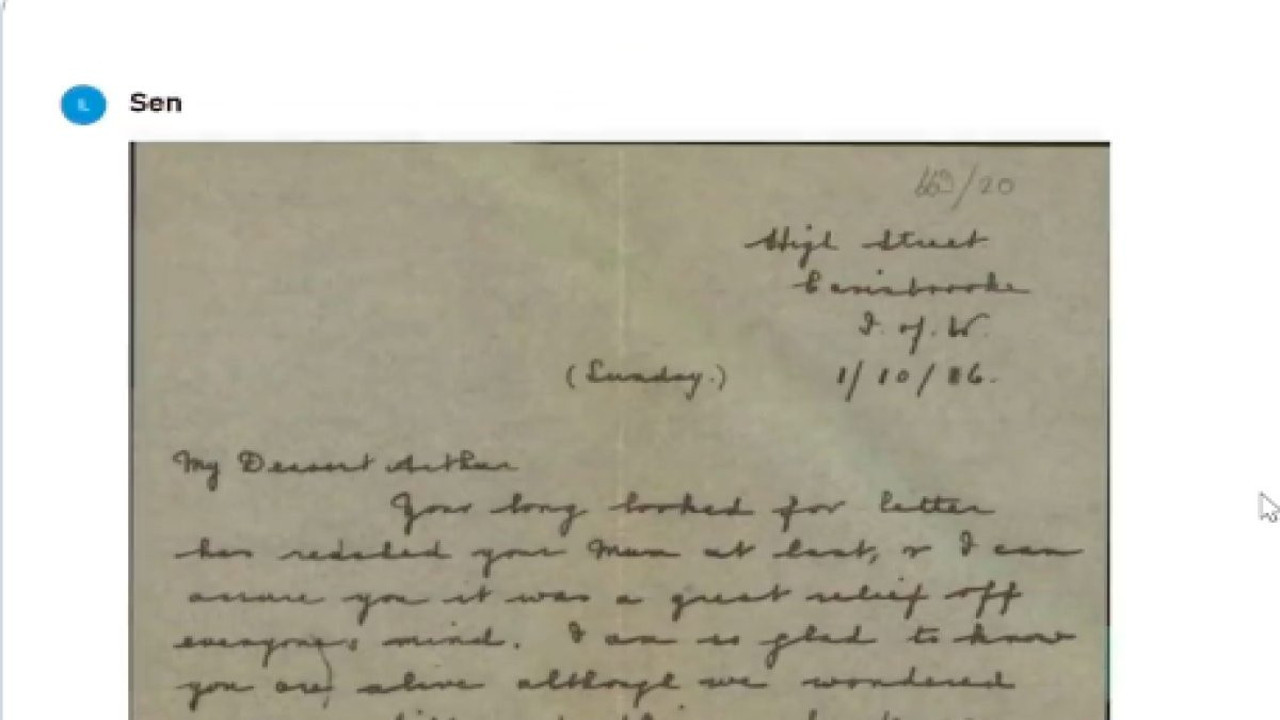 Sen
/20
High Street
Carisbrooke
I. of. W.
(Sunday.) 1/10/16.
My Dearest Arthur
Your long looked for letter
has reached your Mum at last, & I can
assure you it was a great relief off
everyone's mind. I am so glad to know
you are alive although we wondered